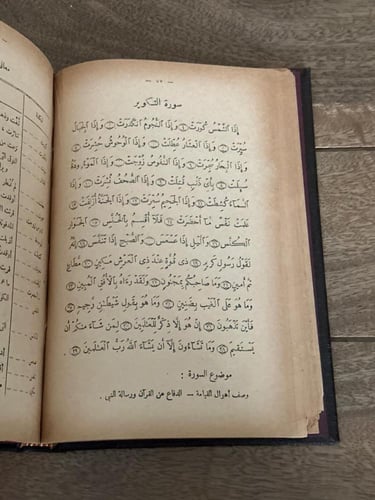 — ٥٢ —
سورة التكاوير
إِذَا الشَّمْسُ كُوِّرَتْ ① وَإِذَا النُّجُومُ انْكَدَرَتْ ② وَإِذَا الْجِبَالُ
سُيِّرَتْ ③ وَإِذَا الْعِشَارُ عُطِّلَتْ ④ وَإِذَا الْوُحُوشُ حُشِرَتْ ⑤
وَإِذَا الْبِحَارُ سُجِّرَتْ ⑥ وَإِذَا النُّفُوسُ زُوِّجَتْ ⑦ وَإِذَا الْمَوْءُودَةُ
سُئِلَتْ ⑧ بِأَيِّ ذَنْبٍ قُتِلَتْ ⑨ وَإِذَا الصُّحُفُ نُشِرَتْ ⑩ وَإِذَا
السَّمَاءُ كُشِطَتْ ⑪ وَإِذَا الْجَحِيمُ سُعِّرَتْ ⑫ وَإِذَا الْجَنَّةُ أُزْلِفَتْ ⑬
عَلِمَتْ نَفْسٌ مَا أَحْضَرَتْ ⑭ فَلَا أُقْسِمُ بِالْخُنَّسِ ⑮ الْجَوَارِ
الْكُنَّسِ ⑯ وَالَّيْلِ إِذَا عَسْعَسَ ⑰ وَالصُّبْحِ إِذَا تَنَفَّسَ ⑱ إِنَّهُ
لَقَوْلُ رَسُولٍ كَرِيمٍ ⑲ ذِي قُوَّةٍ عِنْدَ ذِي الْعَرْشِ مَكِينٍ ⑳ مُطَاعٍ
ثَمَّ أَمِينٍ ㉑ وَمَا صَاحِبُكُمْ بِمَجْنُونٍ ㉒ وَلَقَدْ رَءَاهُ بِالْأُفُقِ الْمُبِينِ ㉓
وَمَا هُوَ عَلَى الْغَيْبِ بِضَنِينٍ ㉔ وَمَا هُوَ بِقَوْلِ شَيْطَٰنٍ رَجِيمٍ ㉕
فَأَيْنَ تَذْهَبُونَ ㉖ إِنْ هُوَ إِلَّا ذِكْرٌ لِلْعَٰلَمِينَ ㉗ لِمَنْ شَاءَ مِنْكُمْ أَنْ
يَسْتَقِيمَ ㉘ وَمَا تَشَاءُونَ إِلَّا أَنْ يَشَاءَ اللهُ رَبُّ الْعَٰلَمِينَ ㉙
موضوع السورة :
وصف أهوال القيامة — الدفاع عن القرآن ورسالة النبي .